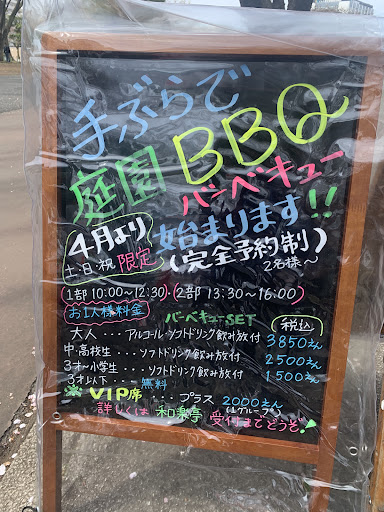 手ぶらで
庭園BBQ
バーベキュー
4月より始まります!!
土・日・祝限定(完全予約制)
2名様〜
1部 10:00〜12:30・2部 13:30〜16:00
お1人様料金 バーベキューSET 税込
大人・・・アルコール・ソフトドリンク飲み放付 3850えん
中・高校生・・・ソフトドリンク飲み放付 2500えん
3才〜小学生・・・ソフトドリンク飲み放付 1500えん
3才以下・・無料
VIP席・・・・プラス 2000えん
(1グループ)
詳しくは 和楽亭 受付までどうぞ!